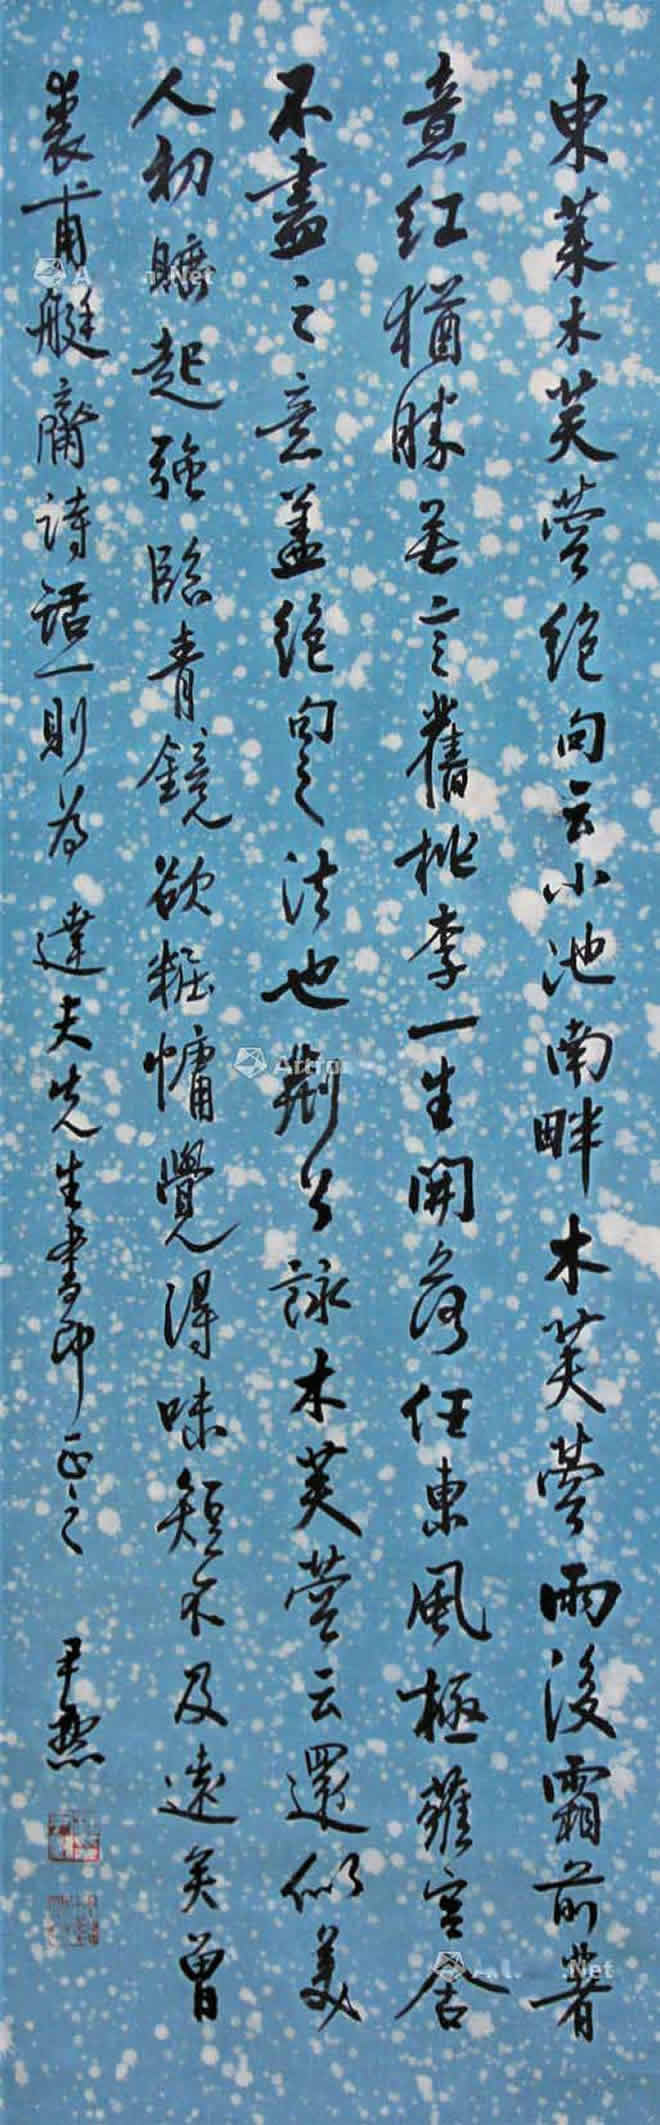 東萊木芙蓉絕句云小池南畔木芙蓉雨後霜前著
意紅猶勝無言舊桃李一生開落任東風極雍容含
不盡之意盖絕句之法也荊公詠木芙蓉云還似美
人初起強臨青鏡欲粧慵覺得味短不及遠矣曾
裘甫艇齋詩話一則為達夫先生書即正之
尹默